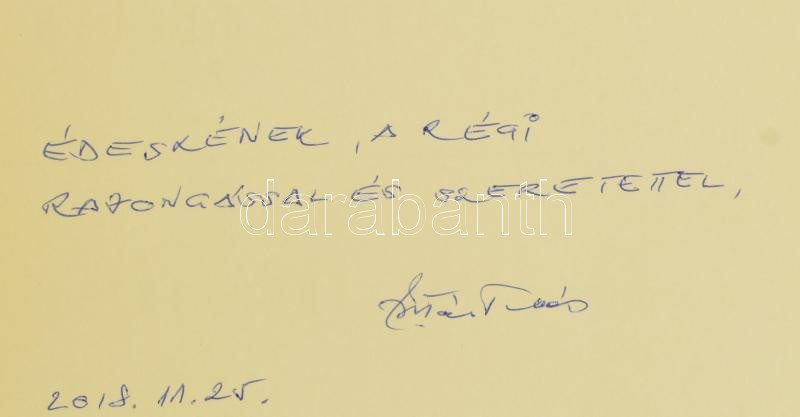 ÉDESKÉNEK, A RÉGI
RAJONGÁSSAL ÉS SZERETETTEL,
darabanth
2018. 11. 25.